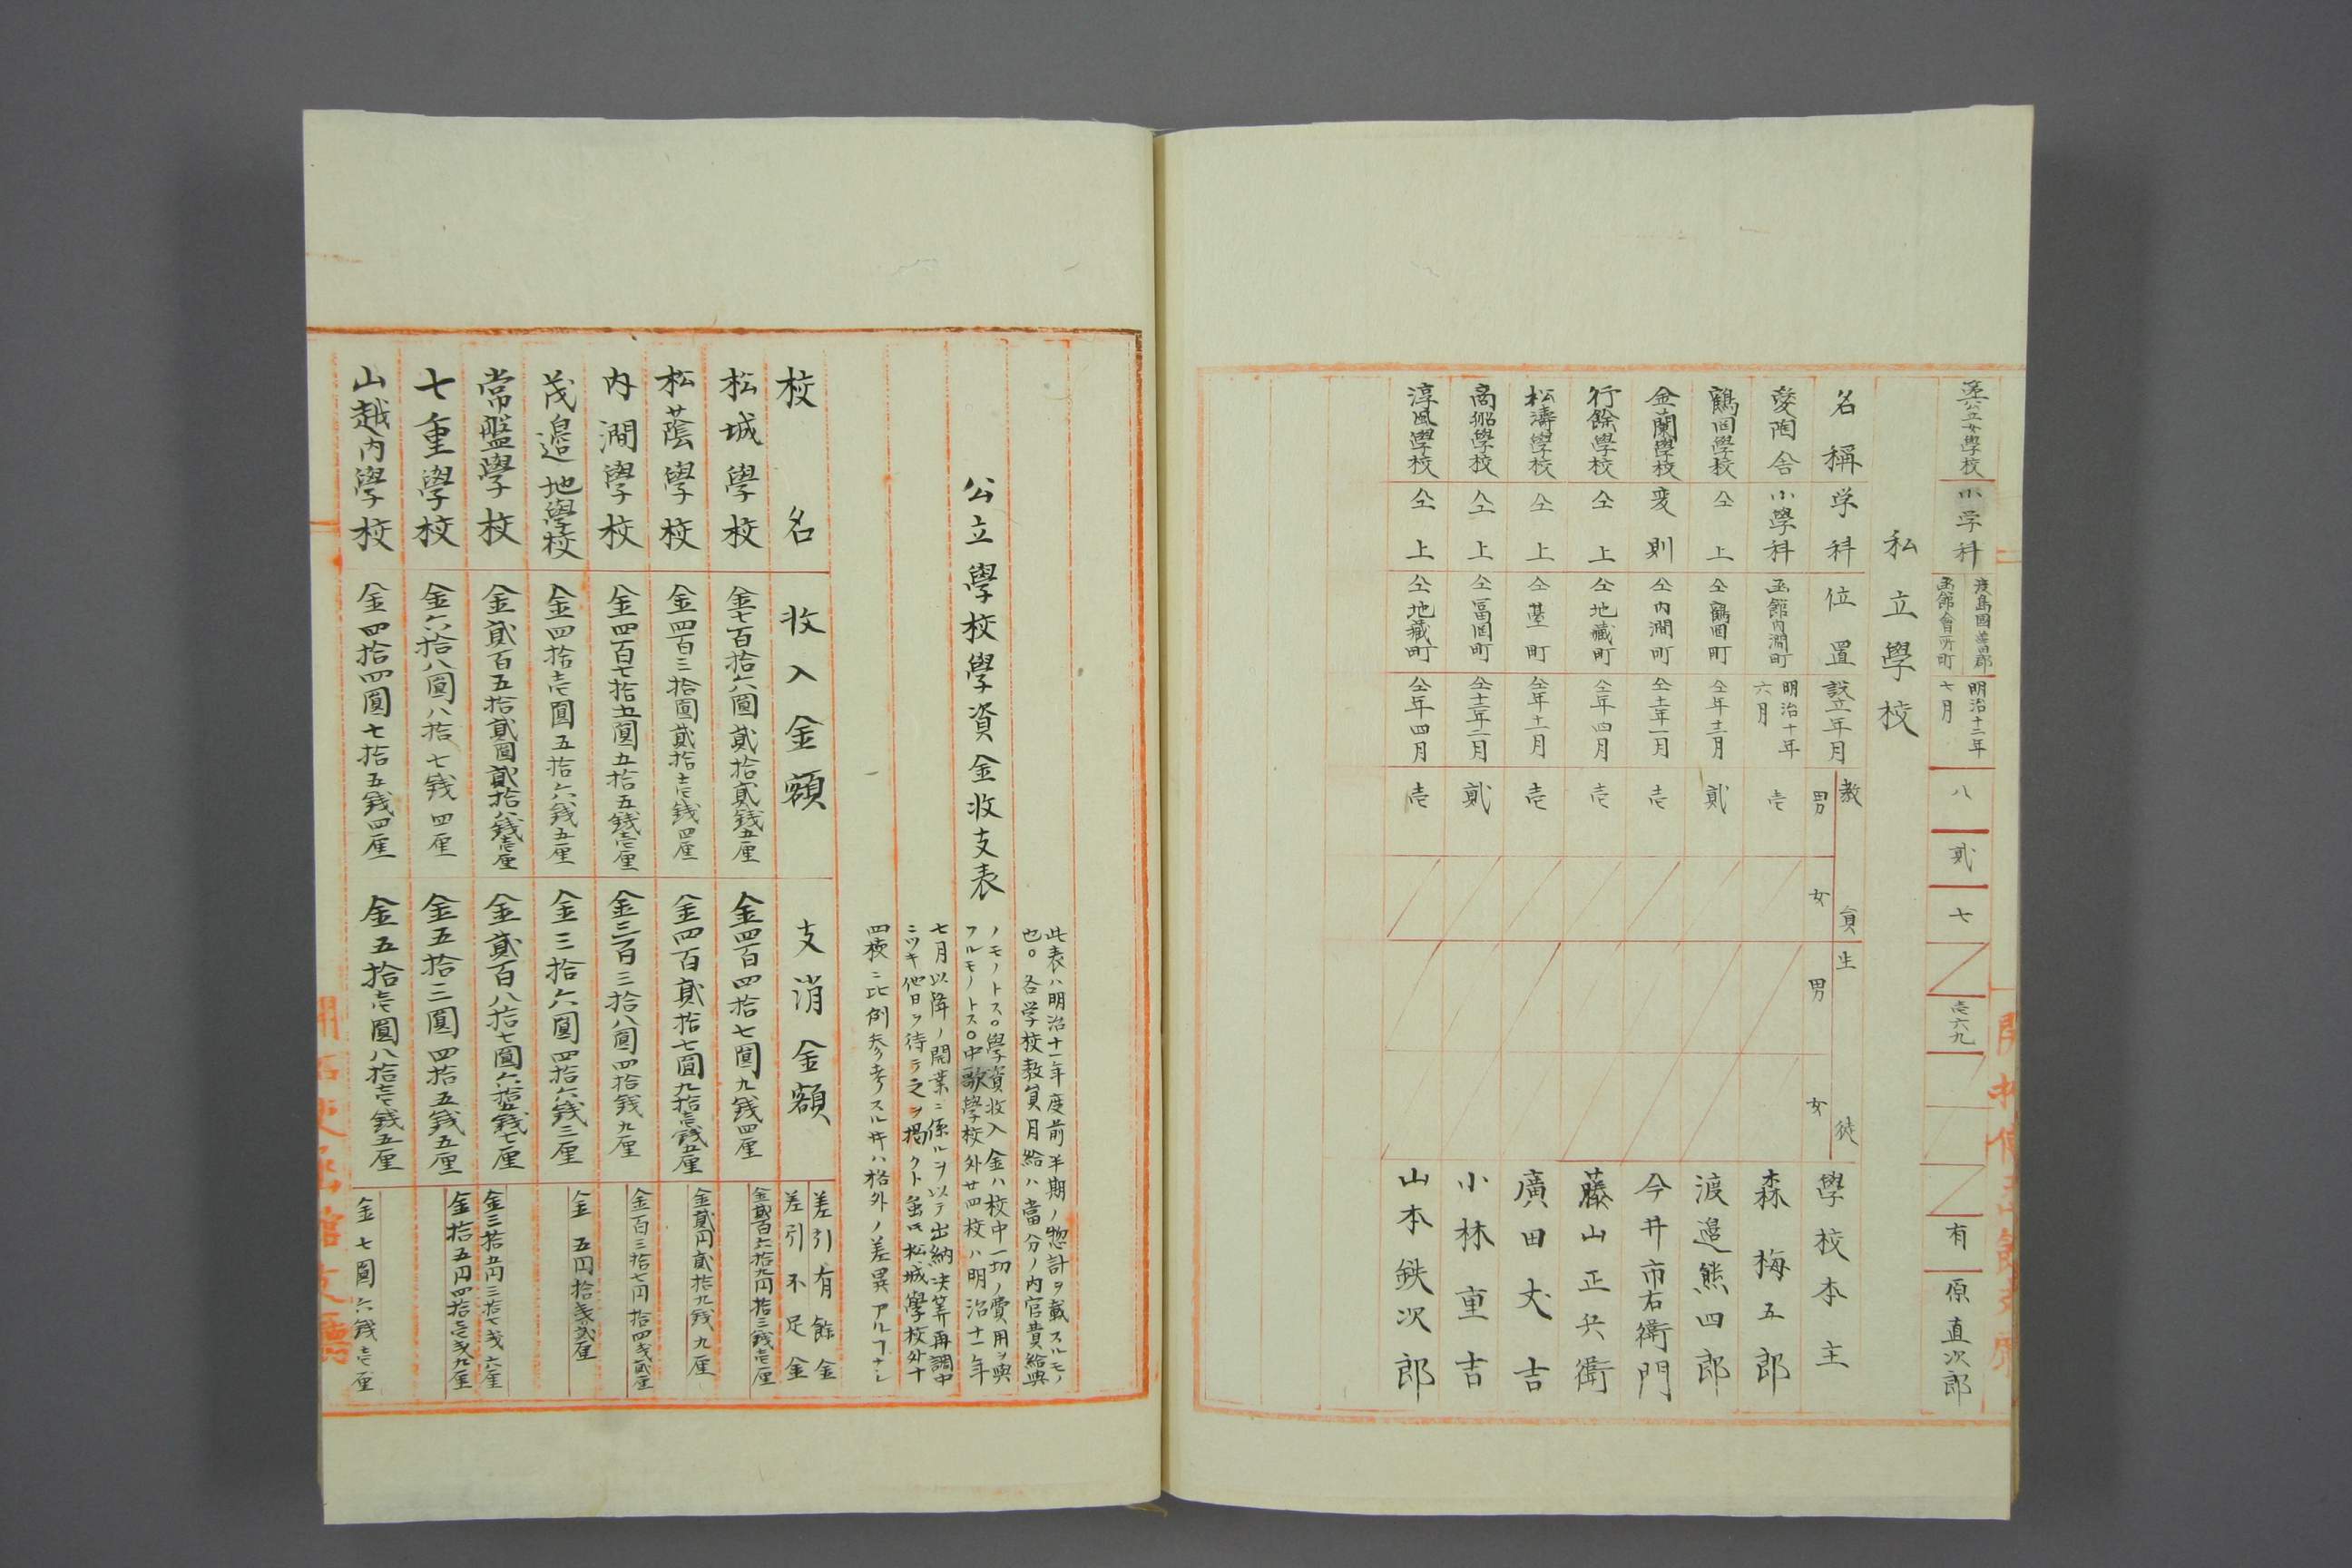 公立女學校 小学科 渡島國亀田郡函館會所町 明治十二年七月 八 貳 七 壱六九 有 原直次郎
私立學校
名稱 学科 位置 設立年月 教員 男 女 生徒 男 女 學校本主
愛陶舎 小學科 函館内澗町 明治十年六月 壱 森梅五郎
鶴岡學校 仝上 仝鶴岡町 仝年十二月 貳 渡邉熊四郎
金蘭學校 変則 仝内澗町 仝十一年一月 壱 今井市右衛門
行餘學校 仝上 仝地藏町 仝年四月 壱 藤山正兵衛
松濤學校 仝上 仝臺町 仝年十一月 壱 廣田丈吉
商船學校 仝上 仝富岡町 仝十二年二月 貳 小林重吉
淳風學校 仝上 仝地藏町 仝年四月 壱 山本鉄次郎
開拓使函館支廳
公立學校學資金收支表
此表ハ明治十一年度前半期ノ惣計ヲ載スルモノ
也○各学校教員月給ハ當分ノ内官費給與
ノモノトス○學資收入金ハ校中一切ノ費用ヲ與
フルモノトス○中歌學校外廿四校ハ明治十一年
七月以降ノ開業ニ係ルヲ以テ出納决筭再調中
ニツキ他日ヲ待テ之ヲ掲クト虽𪜈松城學校外十
四校ニ比例参考スル时ハ格外ノ差異アルヿナシ
校名 收入金額 支消金額 差引有餘金 差引不足金
松城學校 金七百拾六圓貳拾貳錢五厘 金四百四拾七圓九錢四厘 金貳百六拾九円拾三錢壱厘
松蔭學校 金四百三拾圓貳拾壱錢四厘 金四百貳拾七圓九拾壱錢五厘 金貳円貳拾九錢九厘
内澗學校 金四百七拾五圓五拾五錢壱厘 金三百三拾八圓四拾錢九厘 金百三拾七円拾四戋貳厘
茂邉地學校 金四拾壱圓五拾六錢五厘 金三拾六圓四拾六錢三厘 金五円拾戋貳厘
常盤學校 金貳百五拾貳圓貳拾八錢壱厘 金貳百八拾七圓六拾五錢七厘 金三拾五円三拾七戋六厘
七重學校 金六拾八圓八拾七錢四厘 金五拾三圓四拾五錢五厘 金拾五円四拾壱戋九厘
山越内學校 金四拾四圓七拾五錢四厘 金五拾壱圓八拾壱錢五厘 金七圓六錢壱厘
開拓使函館支廳